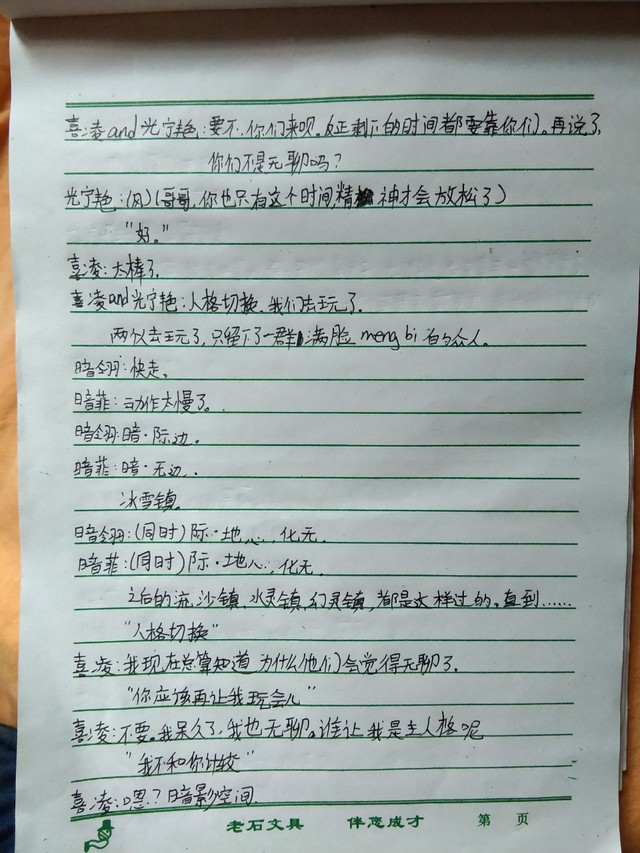 喜凌and光宁艳：要不，你们来呗。反正剩下的时间都要靠你们。再说了，
你们不是无聊吗？
光宁艳：(风)(哥哥，你也只有这个时间，精神才会放松了)
“好。”
喜凌：太棒了。
喜凌and光宁艳：人格切换。我们去玩了。
两个人去玩了，只留下了一群满脸meng bi的众人。
暗翎：快走。
暗菲：动作太慢了。
暗翎：暗·际边。
暗菲：暗·无边。
冰雪镇。
暗翎：(同时)际·地心，化无。
暗菲：(同时)际·地心，化无。
之后的流沙镇、水灵镇、幻灵镇，都是这样过的。直到……
“人格切换”
喜凌：我现在总算知道为什么他们会觉得无聊了。
“你应该再让我玩会儿”
喜凌：不要。我呆久了，我也无聊。谁让我是主人格呢
“我不和你计较”
喜凌：嗯？暗影空间。
老石文具 伴您成才 第 页